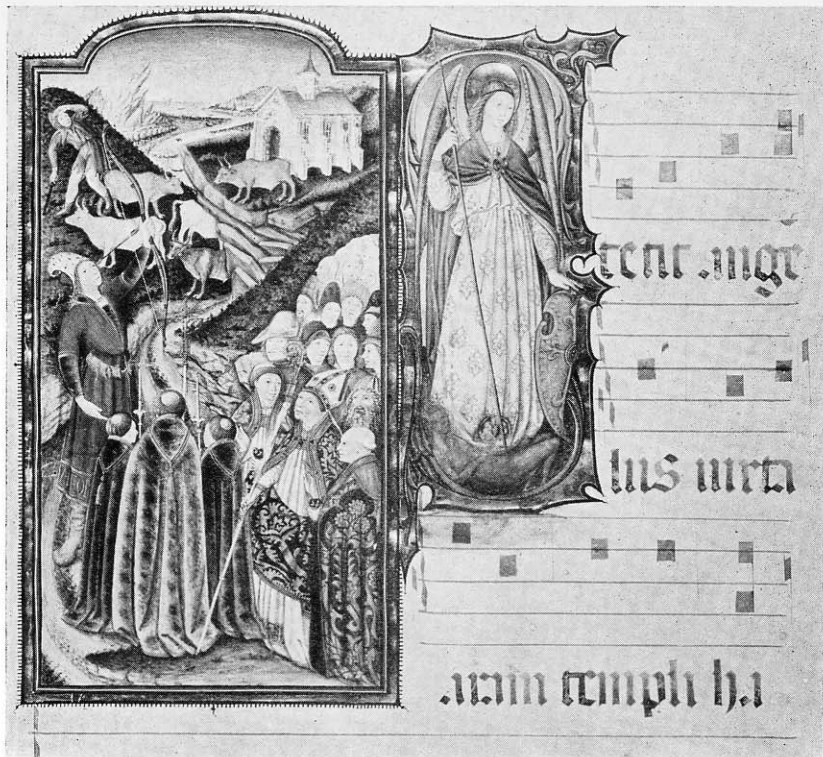 Stetit ange
lus iuxta
aram templi ha